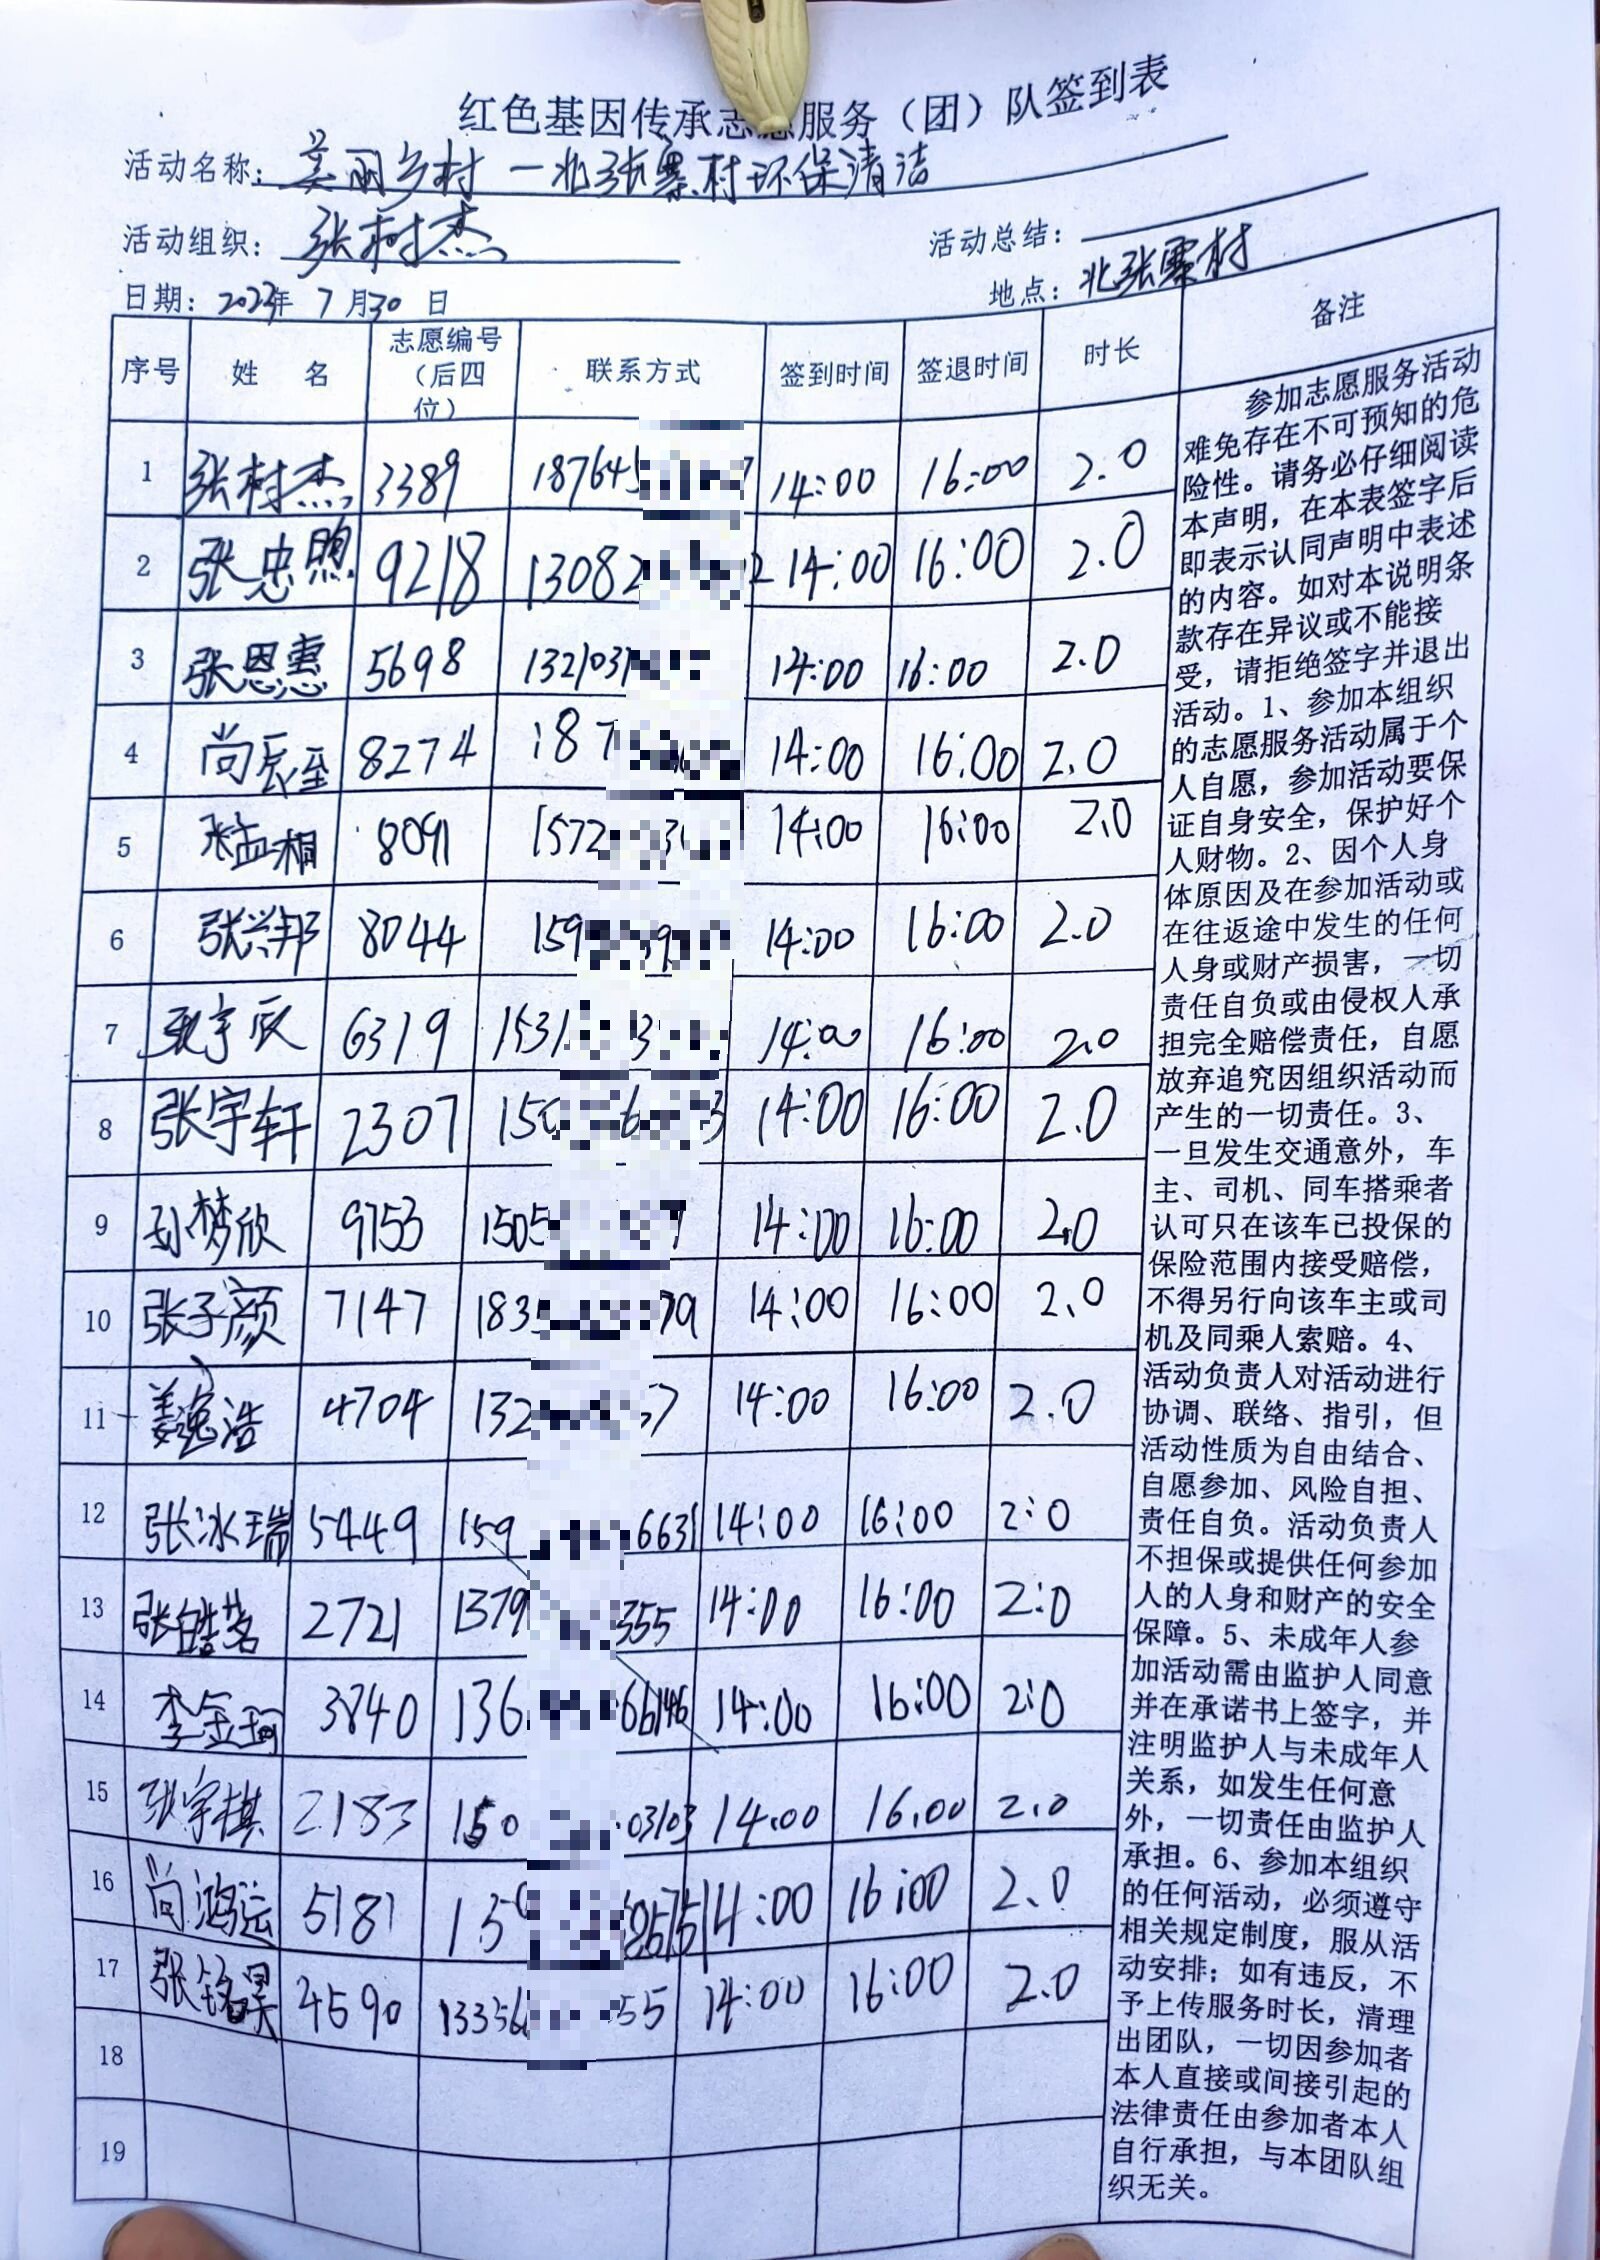 红色基因传承志愿服务（团）队签到表
活动名称：美丽乡村—北张寨村环保清洁
活动组织：张树杰 活动总结：
日期：2023年 7月30日 地点：北张寨村
序号 姓 名 志愿编号（后四位） 联系方式 签到时间 签退时间 时长 备注
1 张树杰 3389 187645 7 14:00 16:00 2.0
2 张忠煦 9218 13082 2 14:00 16:00 2.0
3 张恩惠 5698 132103 14:00 16:00 2.0
4 尚辰至 8274 187 14:00 16:00 2.0
5 张孟湘 8091 1572 14:00 16:00 2.0
6 张兴邦 8044 159 14:00 16:00 2.0
7 张宇辰 6319 1531 3 14:00 16:00 2.0
8 张宇轩 2307 150 6 3 14:00 16:00 2.0
9 孙梦欣 9753 1505 7 14:00 16:00 2.0
10 张子颜 7147 183 79 14:00 16:00 2.0
11 姜逸浩 4704 132 57 14:00 16:00 2.0
12 张冰瑞 5449 159 6631 14:00 16:00 2:0
13 张皓茗 2721 1379 355 14:00 16:00 2:0
14 李金珂 3840 136 66146 14:00 16:00 2:0
15 张宇棋 2183 150 03103 14:00 16.00 2.0
16 尚鸿运 5181 15 14:00 16:00 2.0
17 张铭昊 4590 13356 55 14:00 16:00 2.0
18
19
参加志愿服务活动
难免存在不可预知的危
险性。请务必仔细阅读
本声明，在本表签字后
即表示认同声明中表述
的内容。如对本说明条
款存在异议或不能接
受，请拒绝签字并退出
活动。1、参加本组织
的志愿服务活动属于个
人自愿，参加活动要保
证自身安全，保护好个
人财物。2、因个人身
体原因及在参加活动或
在往返途中发生的任何
人身或财产损害，一切
责任自负或由侵权人承
担完全赔偿责任，自愿
放弃追究因组织活动而
产生的一切责任。3、
一旦发生交通意外，车
主、司机、同车搭乘者
认可只在该车已投保的
保险范围内接受赔偿，
不得另行向该车主或司
机及同乘人索赔。4、
活动负责人对活动进行
协调、联络、指引，但
活动性质为自由结合、
自愿参加、风险自担、
责任自负。活动负责人
不担保或提供任何参加
人的人身和财产的安全
保障。5、未成年人参
加活动需由监护人同意
并在承诺书上签字，并
注明监护人与未成年人
关系，如发生任何意
外，一切责任由监护人
承担。6、参加本组织
的任何活动，必须遵守
相关规定制度，服从活
动安排；如有违反，不
予上传服务时长，清理
出团队，一切因参加者
本人直接或间接引起的
法律责任由参加者本人
自行承担，与本团队组
织无关。